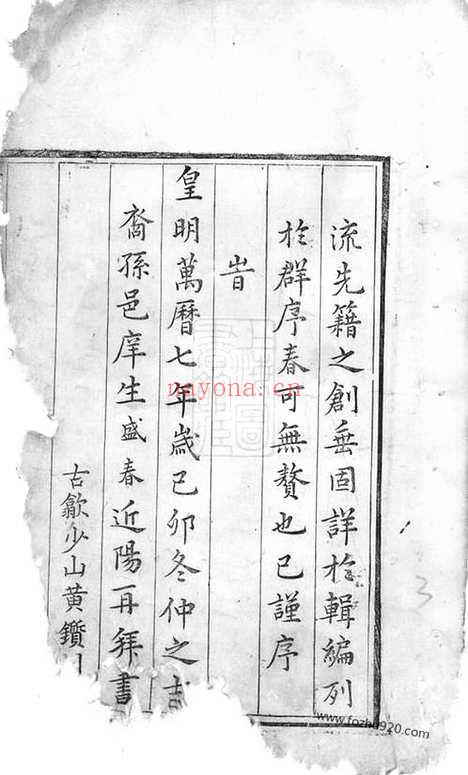 流先籍之創垂固詳於輯編列
於群序春可無贅也已謹序
旹
皇明萬曆七年歲己卯冬仲之吉
裔孫邑庠生盛春近陽再拜書
古歙少山黃鑽
nayona.cn
www.fozhu920.com
3